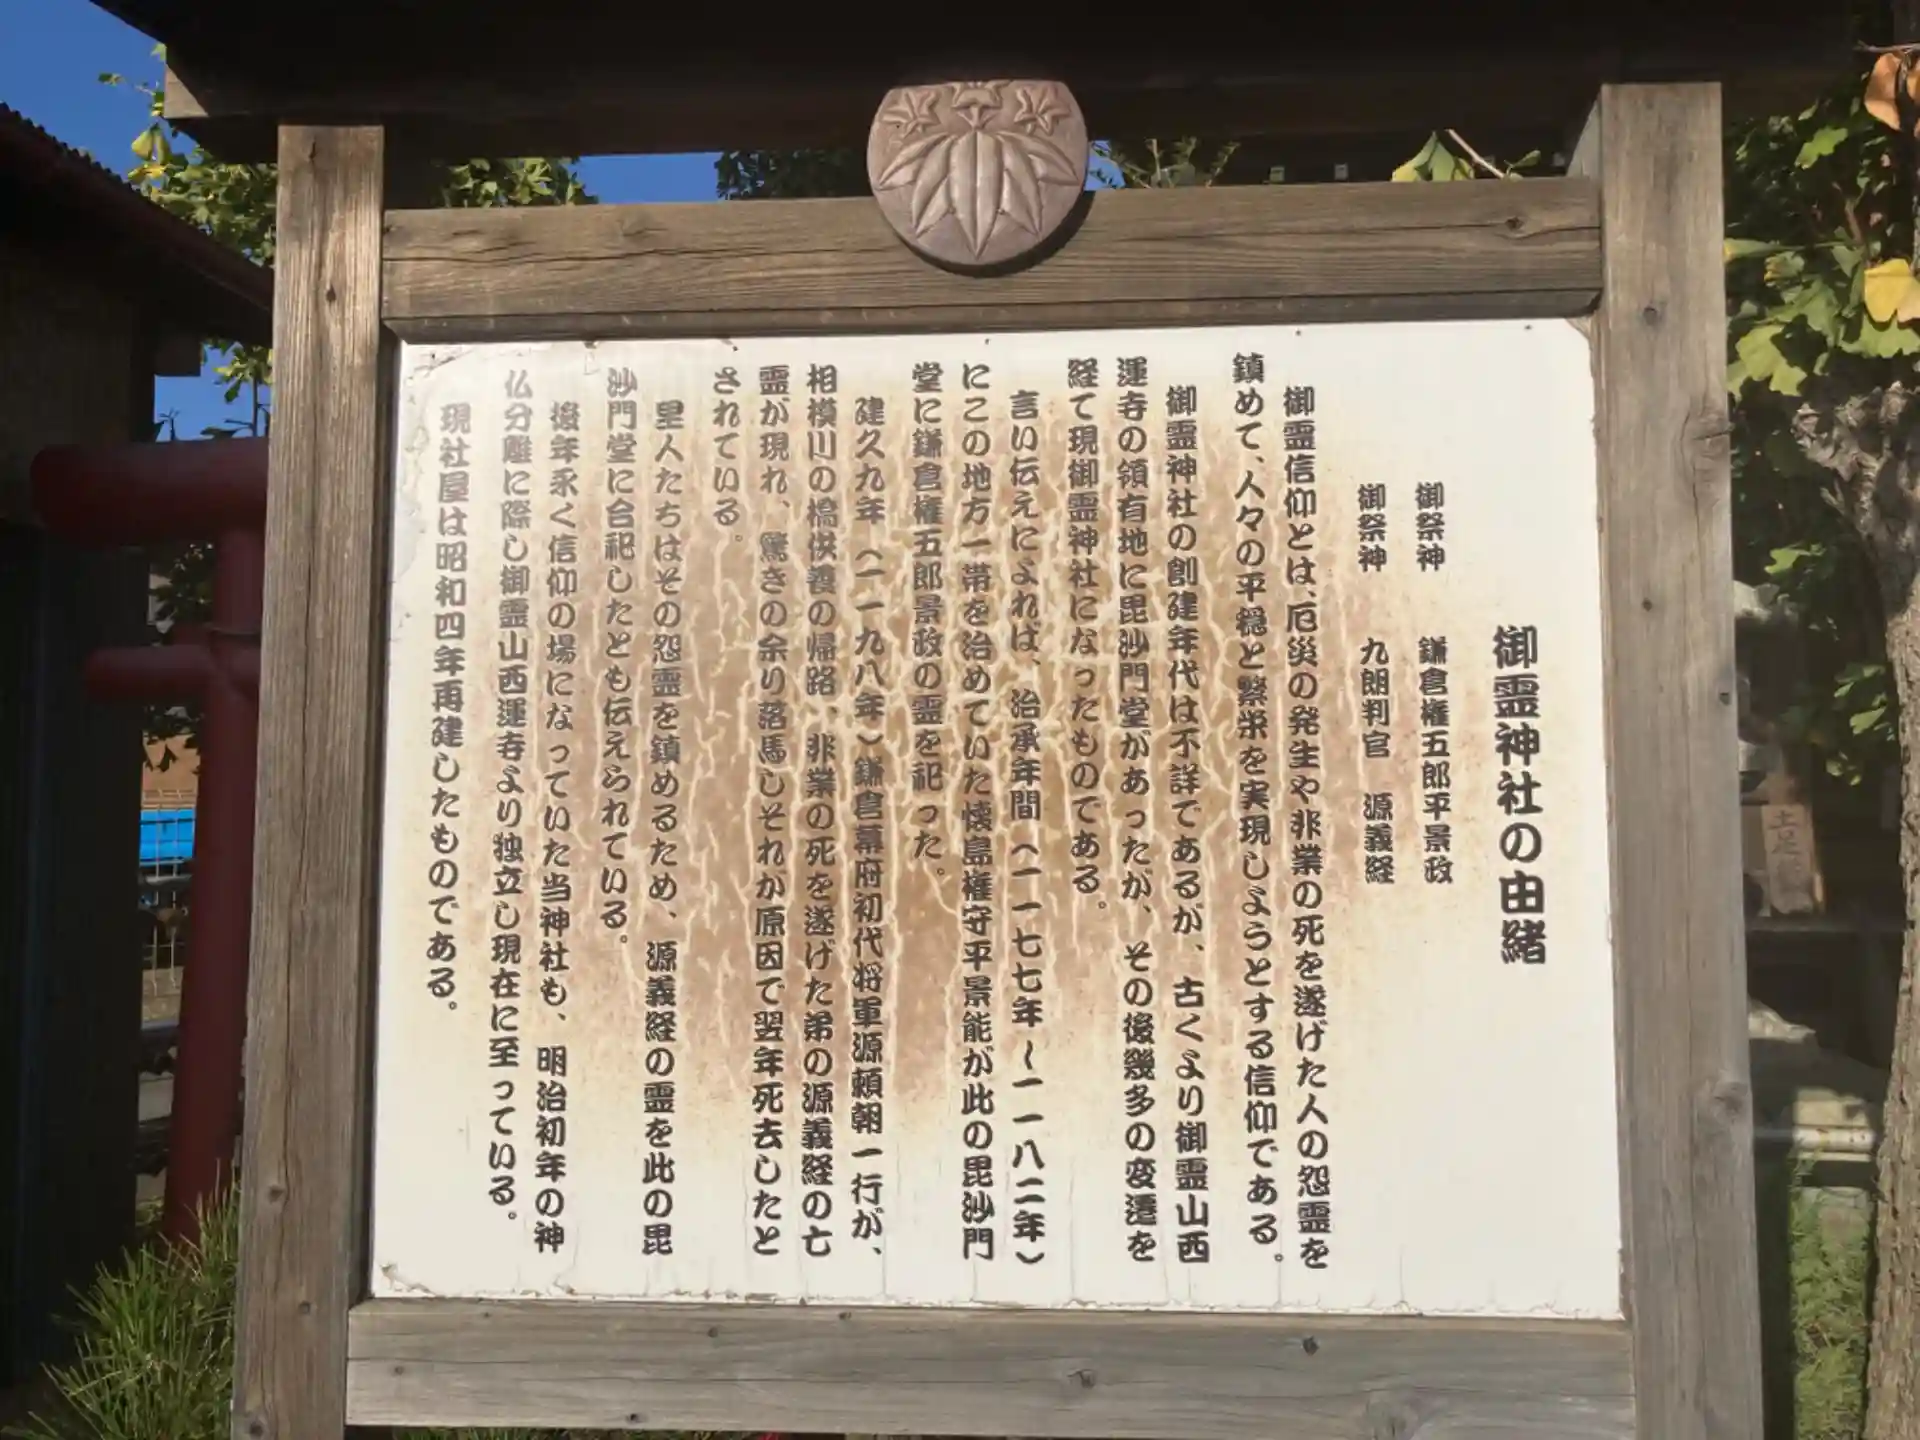 御霊神社の由緒
御祭神　鎌倉権五郎平景政
御祭神　九朗判官　源義経
御霊信仰とは、厄災の発生や非業の死を遂げた人の怨霊を
鎮めて、人々の平穏と繁栄を実現しようとする信仰である。
御霊神社の創建年代は不詳であるが、古くより御霊山西
運寺の領有地に毘沙門堂があったが、その後幾多の変遷を
経て現御霊神社になったものである。
言い伝えによれば、治承年間（一一七七年～一一八二年）
にこの地方一帯を治めていた懐島権守平景能が此の毘沙門
堂に鎌倉権五郎景政の霊を祀った。
建久九年（一一九八年）鎌倉幕府初代将軍源頼朝一行が、
相模川の橋供養の帰路、非業の死を遂げた弟の源義経の亡
霊が現れ、驚きの余り落馬しそれが原因で翌年死去したと
されている。
里人たちはその怨霊を鎮めるため、源義経の霊を此の毘
沙門堂に合祀したとも伝えられている。
後年永く信仰の場になっていた当神社も、明治初年の神
仏分離に際し御霊山西運寺より独立し現在に至っている。
現社屋は昭和四年再建したものである。
土足